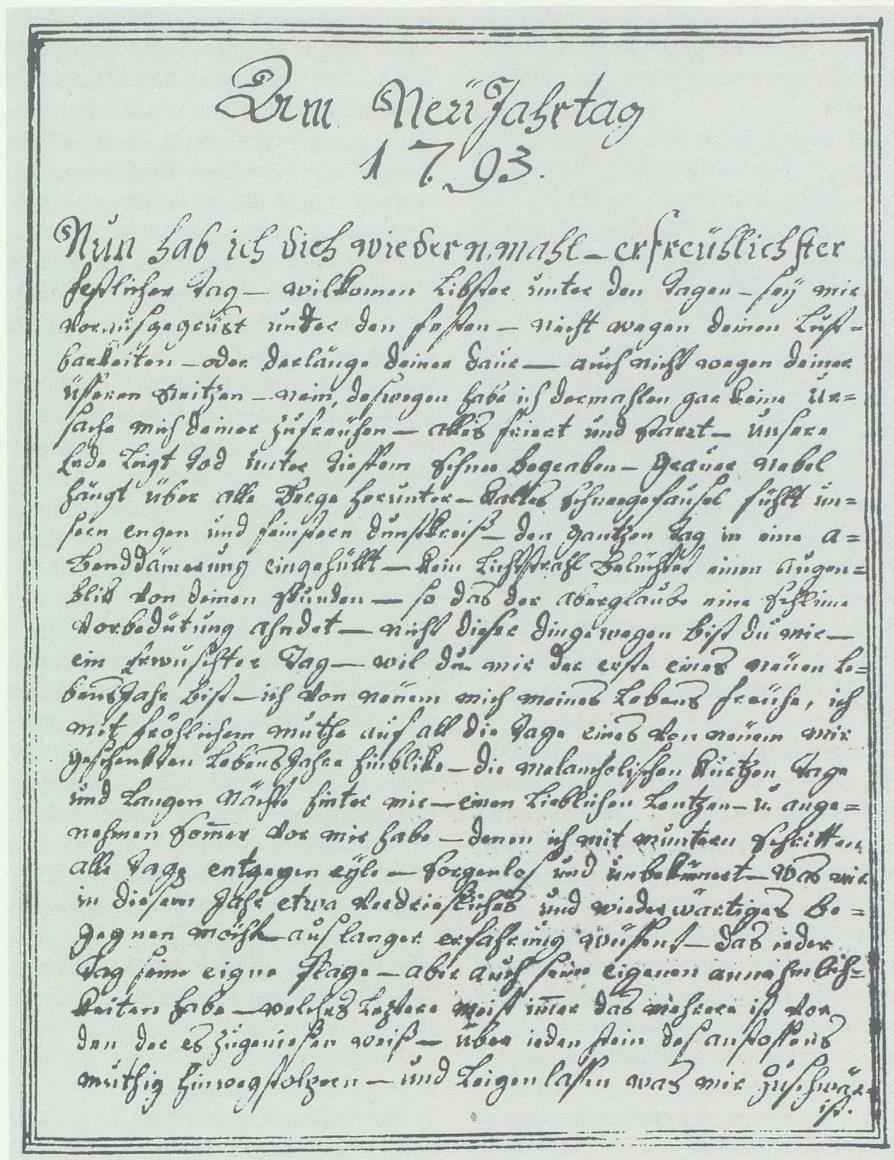 Am Neüjahrtag
1793.
Nun hab ich dich wiedernmahl – erfreühlichster
festlicher Tag – wilkomen Libster unter den Tagen – sey mir
vorausgegrüst under den festen – nicht wegen deinen Lust=
barkeiten – oder der länge deiner daur – auch nicht wegen deiner
üsseren Reitzen – nein, deswegen habe ich dermahlen gar keine Ur=
sache mich deiner zufreühen – alles friert und starrt – unsere
Erde Leigt Tod unter tieffem schnee begraben – grauer nebel
hängt über alle berge herunter – kaltes schneegesäusel fühlt un=
sern engen und feinstern dunstkreiß – den gantzen Tag in eine a=
benddämerung eingehüllt – kein Lichtstrahl belüchtet einen augen=
blik von deinen stunden – so das der aberglaube eine schlime
vorbedütung ahndet – nicht dieser dinge wegen bist du mir –
ein Erwüschter Tag – wil du mir der erste eines neüen Le=
bensJahr bist – ich von neüem mich meines Lebens freühe, ich
mit fröhlichem muthe auf all die tage eines von neüem mir
geschenkten LebensJahrs hinblike – die melancholischen kurtzen Tage
und Langen Nächte hinter mir – einen Lieblichen Lentzen – u. ange=
nehmen Somer vor mir habe – denen ich mit muntern schritten
alle Tage entgegen eyle – sorgenlos und unbekümert – was mir
in diesem Jahr etwa verdriesliches und wiederwärtiges be=
gegnen möcht – aus langer erfahrung wüssent – das ieder
Tag seine eigne Plage – aber auch seine eigenen annehmlich=
keiten habe – welches Leztere meist imer das mehrere ist vor
den der es zugeniesen weiß – über ieden stein des anstossens
muthig hinwegstolpern – und Leigen lassen was mir zuschwär
ist.